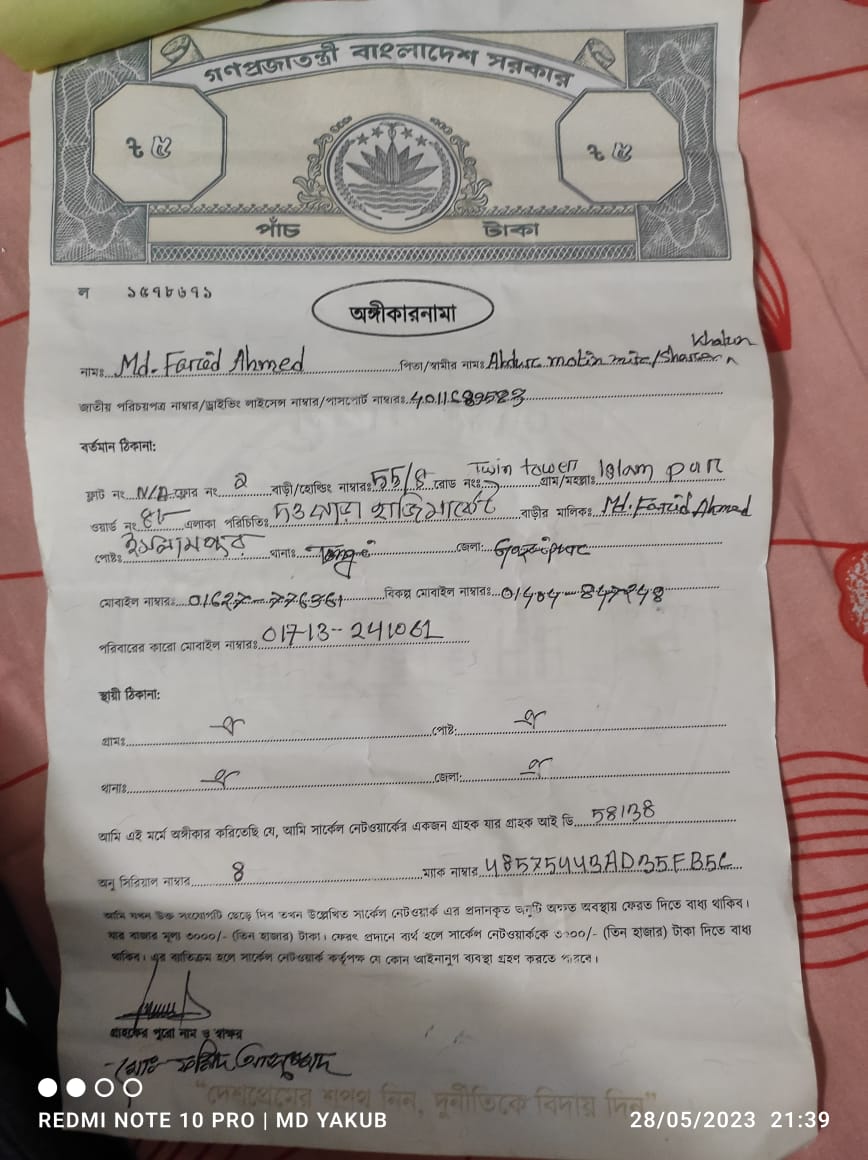 গণপ্রজাতন্ত্রী বাংলাদেশ সরকার
ট ৫ ট ৫
পাঁচ টাকা
ল ১৫৭৮৬৭১
অঙ্গীকারনামা
নামঃ Md. Farid Ahmed পিতা/স্বামীর নামঃ Khatun
জাতীয় পরিচয়পত্র নাম্বার/ড্রাইভিং লাইসেন্স নাম্বার/পাসপোর্ট নাম্বারঃ
বর্তমান ঠিকানা:
ফ্লাট নং N/A ফ্লোর নং ২ বাড়ী/হোল্ডিং নাম্বারঃ 55/8 রোড নংঃ Twin tower গ্রাম/মহল্লাঃ Islam pur
ওয়ার্ড নং এলাকা পরিচিতিঃ দত্তপাড়া হাজিমার্কেট বাড়ীর মালিকঃ Md. Farid Ahmed
পোষ্টঃ ইসলামপুর থানাঃ Tongi জেলা: Gazipur
মোবাইল নাম্বারঃ বিকল্প মোবাইল নাম্বারঃ 01404-847248
পরিবারের কারো মোবাইল নাম্বারঃ 01713-241061
স্থায়ী ঠিকানা:
গ্রামঃ ঐ পোষ্ট: ঐ
থানাঃ ঐ জেলা: ঐ
আমি এই মর্মে অঙ্গীকার করিতেছি যে, আমি সার্কেল নেটওয়ার্কের একজন গ্রাহক যার গ্রাহক আই ডি 58138
অনু সিরিয়াল নাম্বার 8 ম্যাক নাম্বার 48575443AD35FB5C
আমি যখন উক্ত সংযোগটি ছেড়ে দিব তখন উল্লেখিত সার্কেল নেটওয়ার্ক এর প্রদানকৃত অনুটি অক্ষত অবস্থায় ফেরত দিতে বাধ্য থাকিব।
যার বাজার মূল্য ৩০০০/- (তিন হাজার) টাকা। ফেরৎ প্রদানে ব্যর্থ হলে সার্কেল নেটওয়ার্ককে ৩০০০/- (তিন হাজার) টাকা দিতে বাধ্য
থাকিব। এর ব্যতিক্রম হলে সার্কেল নেটওয়ার্ক কর্তৃপক্ষ যে কোন আইনানুগ ব্যবস্থা গ্রহণ করতে পারবে।
গ্রাহকের পুরো নাম ও স্বাক্ষর
মোঃ ফরিদ আহম্মেদ
“দেশপ্রেমের শপথ নিন, দুর্নীতিকে বিদায় দিন”
REDMI NOTE 10 PRO | MD YAKUB 28/05/2023 21:39